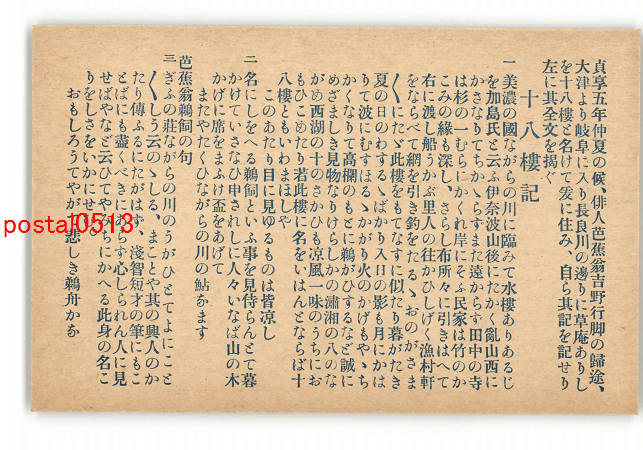 貞享五年仲夏の候、俳人芭蕉翁吉野行脚の歸途、
大津より岐阜に入り長良川の邊りに草庵ありし
を十八樓と名けて爰に住み、自ら其記を記せり
左に其全文を掲ぐ
十八樓記
一 美濃の國ながらの川に臨みて水樓ありあるじ
を加島氏と云ふ伊奈波山後にたかく亂山西に
かさなりてちかゝらずまた遠からず田中の寺
は杉の一むらにかくれ岸にそふ民家は竹のか
こみの緣も深し、さらし布所々に引きはへて
右に渡し船うかぶ里人の往かひしげく漁村軒
をならべて網を引き釣をたるゝおのがさま
〱にたゞ此樓をもてなすに似たり暮がたき
夏の日のわするゝばかり入日の影も月にかは
りて波にむすほるゝかがり火のかげもやゝち
かくなりて高欄のもとに鵜がひするなど誠に
めざましき見物なりけらしかの瀟湘の八のな
がめ西湖の十のさかひも凉風一味のうちにお
もひこめたり若此樓に名をいはんとならば十
八樓ともいわまほしや
このあたり目に見ゆるものは皆凉し
二 名にしをへる鵜飼といふ事を見侍らんとて暮
かけていさなひ申されしに人々いなば山の木
かげに席をまふけ盃をあげて
またやたくひながらの川の鮎なます
芭蕉翁鵜飼の句
三 ぎふの莊ながらの川のうがひとてよにこと
〱しう云のゝしる、まことや其の興人のか
たり傳ふるにたがはず、淺智短才の筆にもこ
とばにも盡くべきにあらず心しられん人に見
せばやなど云ひてやみぢにかへる此身の名こ
りをしさをいかにせむ
おもしろうてやが悲しき鵜舟かな
postal0513